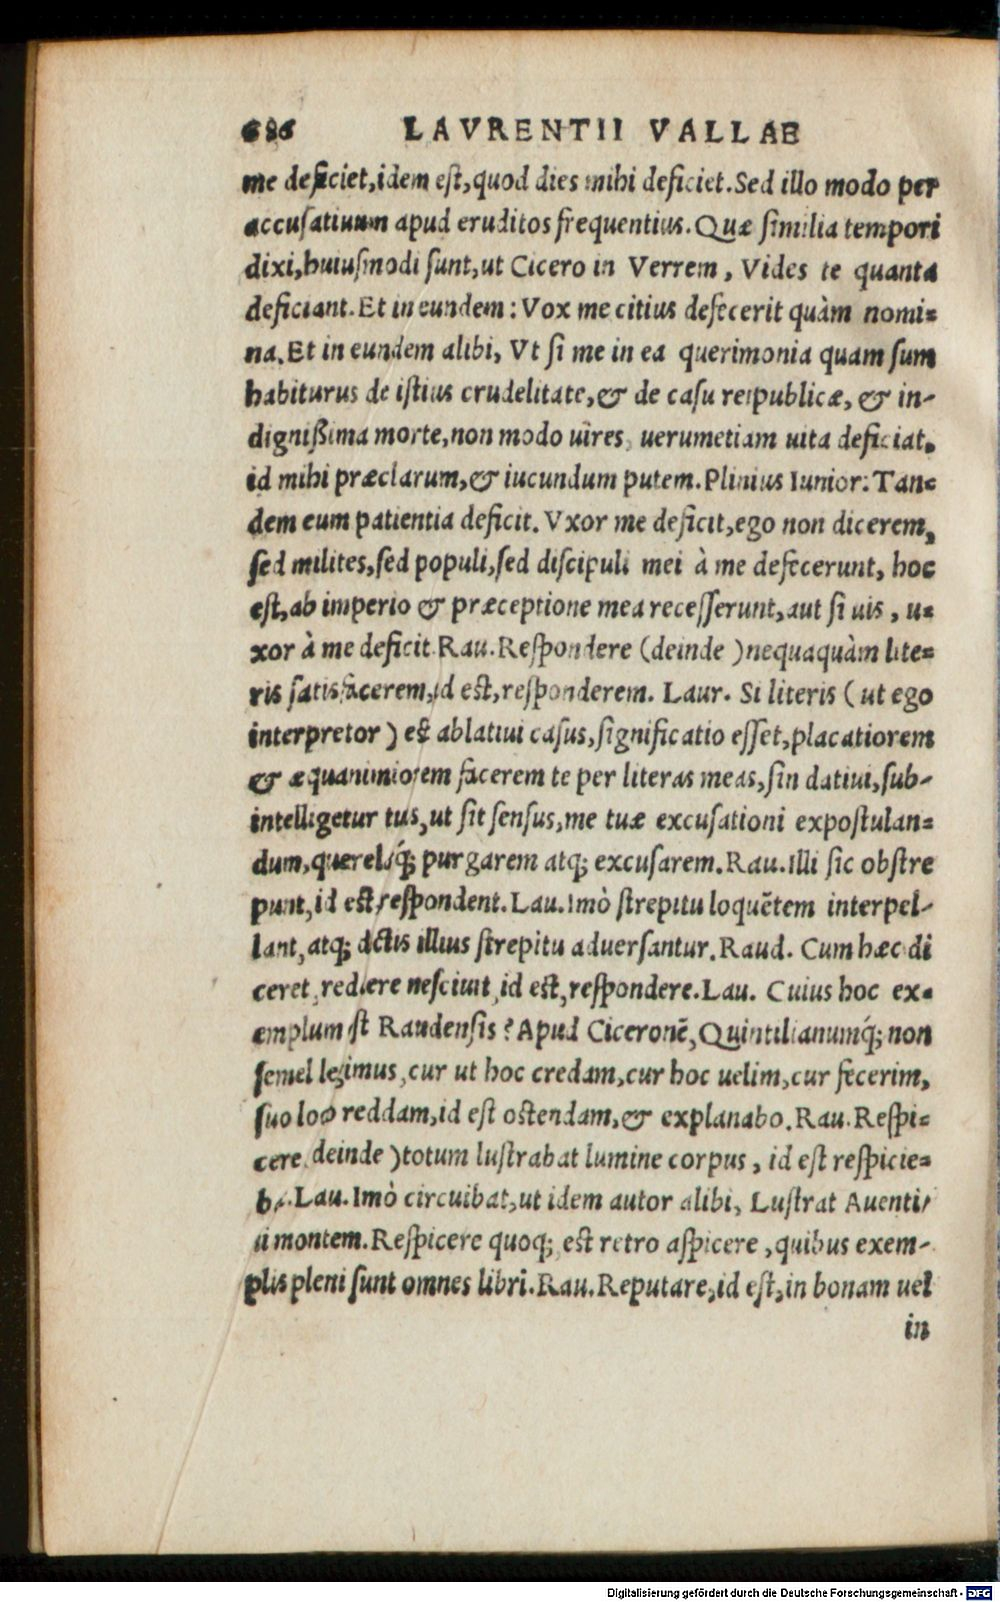 686 LAVRENTII VALLAE
me deficiet, idem eſt, quod dies mihi deficiet. Sed illo modo per
accuſatiuum apud eruditos frequentius. Quæ ſimilia tempori
dixi, huiuſmodi ſunt, ut Cicero in Verrem, Vides te quanta
deficiant. Et in eundem: Vox me citius defecerit quàm nomi=
na. Et in eundem alibi, Vt ſi me in ea querimonia quam ſum
habiturus de iſtius crudelitate, & de caſu reipublicæ, & in-
digniſsima morte, non modo uires, uerumetiam uita deficiat.
id mihi præclarum, & iucundum putem. Plinius Iunior: Tan=
dem eum patientia deficit. Vxor me deficit, ego non dicerem,
ſed milites, ſed populi, ſed diſcipuli mei à me defecerunt, hoc
eſt, ab imperio & præceptione mea receſſerunt, aut ſi uis, u=
xor à me deficit. Rau. Reſpondere (deinde) nequaquàm lite=
ris ſatisfacerem, id eſt, reſponderem. Laur. Si literis (ut ego
interpretor) eſt ablatiui caſus, ſignificatio eſſet, placatiorem
& æquanimiorem facerem te per literas meas, ſin datiui, ſub-
intelligetur tuis, ut ſit ſenſus, me tuæ excuſationi expoſtulan=
dum, querelisq́; purgarem atq; excuſarem. Rau. Illi ſic obſtre
punt, id eſt, reſpondent. Lau. Imò ſtrepitu loquētem interpel-
lant, atq; dictis illius ſtrepitu aduerſantur. Raud. Cum hæc di
ceret, reddere neſciunt, id eſt, reſpondere. Lau. Cuius hoc ex=
emplum eſt Raudenſis? Apud Ciceronē, Quintilianumq́; non
ſemel legimus, cur ut hoc credam, cur hoc uelim, cur fecerim,
ſuo loco reddam, id eſt oſtendam, & explanabo. Rau. Reſpi=
cere (deinde) totum luſtrabat lumine corpus, id eſt reſpicie=
bat. Lau. Imò circuibat, ut idem autor alibi, Luſtrat Auenti
ni montem. Reſpicere quoq; eſt retro aſpicere, quibus exem-
plis pleni ſunt omnes libri. Rau. Reputare, id eſt, in bonam uel
in
Digitalisierung gefördert durch die Deutsche Forschungsgemeinschaft - DFG